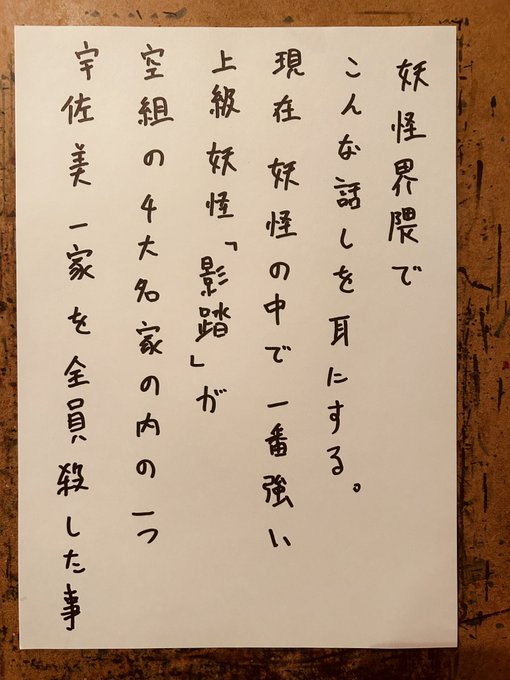 妖怪界隈で
こんな話しを耳にする。
現在 妖怪の中で一番強い
上級妖怪「影踏」が
空組の4大名家の内の一つ
宇佐美一家を全員殺した事